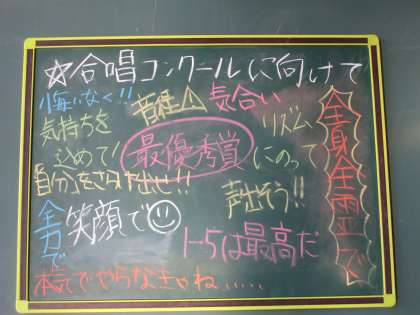 ☆合唱コンクールに向けて
悔いなく!!
音程⚠
気合い
気持ちを
込めて!
最優秀賞
リズム
にのって
全身全霊で
「自分」をさらけ出せ!!
声出そう!!
全力で
笑顔で☺
1-5は最高だ
本気でやらなきゃね、、、、、